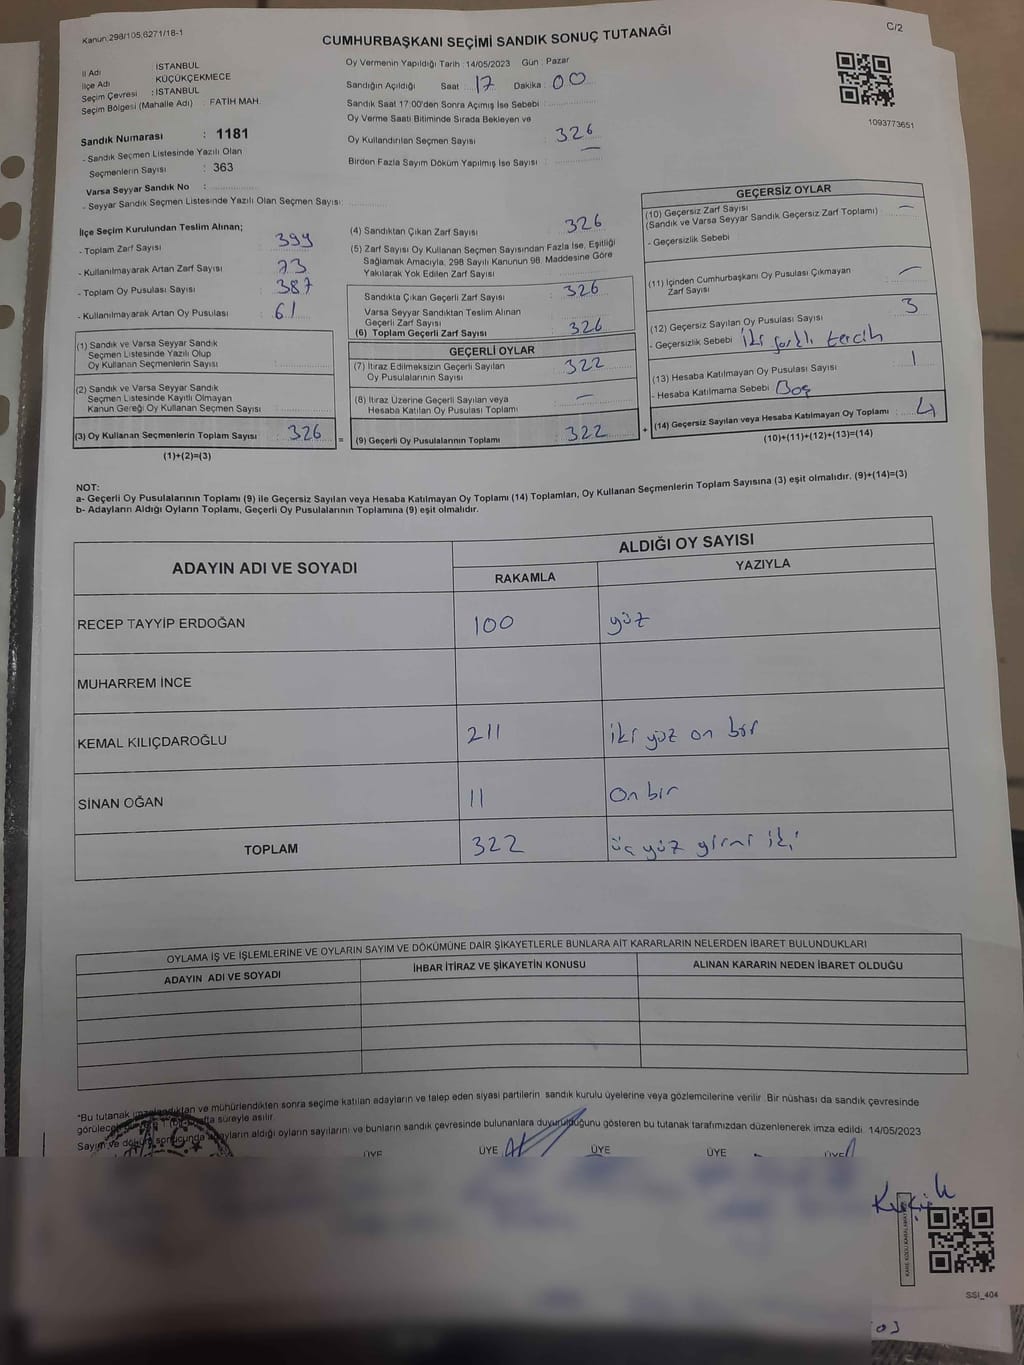 Kanun:298/105,6271/18-1
CUMHURBAŞKANI SEÇİMİ SANDIK SONUÇ TUTANAĞI
C/2
İl Adı İSTANBUL
İlçe Adı KÜÇÜKÇEKMECE
Seçim Çevresi : İSTANBUL
Seçim Bölgesi (Mahalle Adı) : FATİH MAH.
Sandık Numarası : 1181
- Sandık Seçmen Listesinde Yazılı Olan
Seçmenlerin Sayısı : 363
Varsa Seyyar Sandık No :
- Seyyar Sandık Seçmen Listesinde Yazılı Olan Seçmen Sayısı:
Oy Vermenin Yapıldığı Tarih :14/05/2023 Gün : Pazar
Sandığın Açıldığı Saat 17 Dakika : 00
Sandık Saat 17:00'den Sonra Açımış İse Sebebi :
Oy Verme Saati Bitiminde Sırada Bekleyen ve
Oy Kullandırılan Seçmen Sayısı : 326
Birden Fazla Sayım Döküm Yapılmış İse Sayısı :
1093773651
İlçe Seçim Kurulundan Teslim Alınan;
- Toplam Zarf Sayısı : 399
- Kullanılmayarak Artan Zarf Sayısı : 73
- Toplam Oy Pusulası Sayısı : 387
- Kullanılmayarak Artan Oy Pusulası : 61
(1) Sandık ve Varsa Seyyar Sandık
Seçmen Listesinde Yazılı Olup
Oy Kullanan Seçmenlerin Sayısı :
(2) Sandık ve Varsa Seyyar Sandık
Seçmen Listesinde Kayıtlı Olmayan
Kanun Gereği Oy Kullanan Seçmen Sayısı :
(3) Oy Kullanan Seçmenlerin Toplam Sayısı : 326 =
(1)+(2)=(3)
(4) Sandıktan Çıkan Zarf Sayısı : 326
(5) Zarf Sayısı Oy Kullanan Seçmen Sayısından Fazla İse, Eşitliği
Sağlamak Amacıyla, 298 Sayılı Kanunun 98. Maddesine Göre
Yakılarak Yok Edilen Zarf Sayısı :
Sandıkta Çıkan Geçerli Zarf Sayısı : 326
Varsa Seyyar Sandıktan Teslim Alınan
Geçerli Zarf Sayısı :
(6) Toplam Geçerli Zarf Sayısı : 326
GEÇERLİ OYLAR
(7) İtiraz Edilmeksizin Geçerli Sayılan
Oy Pusulalarının Sayısı : 322
(8) İtiraz Üzerine Geçerli Sayılan veya
Hesaba Katılan Oy Pusulası Toplamı : —
(9) Geçerli Oy Pusulalarının Toplamı : 322 +
GEÇERSİZ OYLAR
(10) Geçersiz Zarf Sayısı
(Sandık ve Varsa Seyyar Sandık Geçersiz Zarf Toplamı) : —
- Geçersizlik Sebebi :
(11) İçinden Cumhurbaşkanı Oy Pusulası Çıkmayan
Zarf Sayısı : —
(12) Geçersiz Sayılan Oy Pusulası Sayısı : 3
- Geçersizlik Sebebi : iki farklı tercih
(13) Hesaba Katılmayan Oy Pusulası Sayısı : 1
- Hesaba Katılmama Sebebi : Boş
(14) Geçersiz Sayılan veya Hesaba Katılmayan Oy Toplamı : 4
(10)+(11)+(12)+(13)=(14)
NOT:
a- Geçerli Oy Pusulalarının Toplamı (9) ile Geçersiz Sayılan veya Hesaba Katılmayan Oy Toplamı (14) Toplamları, Oy Kullanan Seçmenlerin Toplam Sayısına (3) eşit olmalıdır. (9)+(14)=(3)
b- Adayların Aldığı Oyların Toplamı, Geçerli Oy Pusulalarının Toplamına (9) eşit olmalıdır.
ADAYIN ADI VE SOYADI
ALDIĞI OY SAYISI
RAKAMLA YAZIYLA
RECEP TAYYİP ERDOĞAN 100 yüz
MUHARREM İNCE
KEMAL KILIÇDAROĞLU 211 iki yüz on bir
SİNAN OĞAN 11 On bir
TOPLAM 322 üç yüz yirmi iki
OYLAMA İŞ VE İŞLEMLERİNE VE OYLARIN SAYIM VE DÖKÜMÜNE DAİR ŞİKAYETLERLE BUNLARA AİT KARARLARIN NELERDEN İBARET BULUNDUKLARI
ADAYIN ADI VE SOYADI İHBAR İTİRAZ VE ŞİKAYETİN KONUSU ALINAN KARARIN NEDEN İBARET OLDUĞU
*Bu tutanak imzalandıktan ve mühürlendikten sonra seçime katılan adayların ve talep eden siyasi partilerin sandık kurulu üyelerine veya gözlemcilerine verilir. Bir nüshası da sandık çevresinde
süreyle asılır.
Sayım ve döküm sonucunda adayların aldığı oyların sayılarını ve bunların sandık çevresinde bulunanlara duyurulduğunu gösteren bu tutanak tarafımızdan düzenlenerek imza edildi. 14/05/2023
ÜYE ÜYE ÜYE ÜYE ÜYE
SSI_404